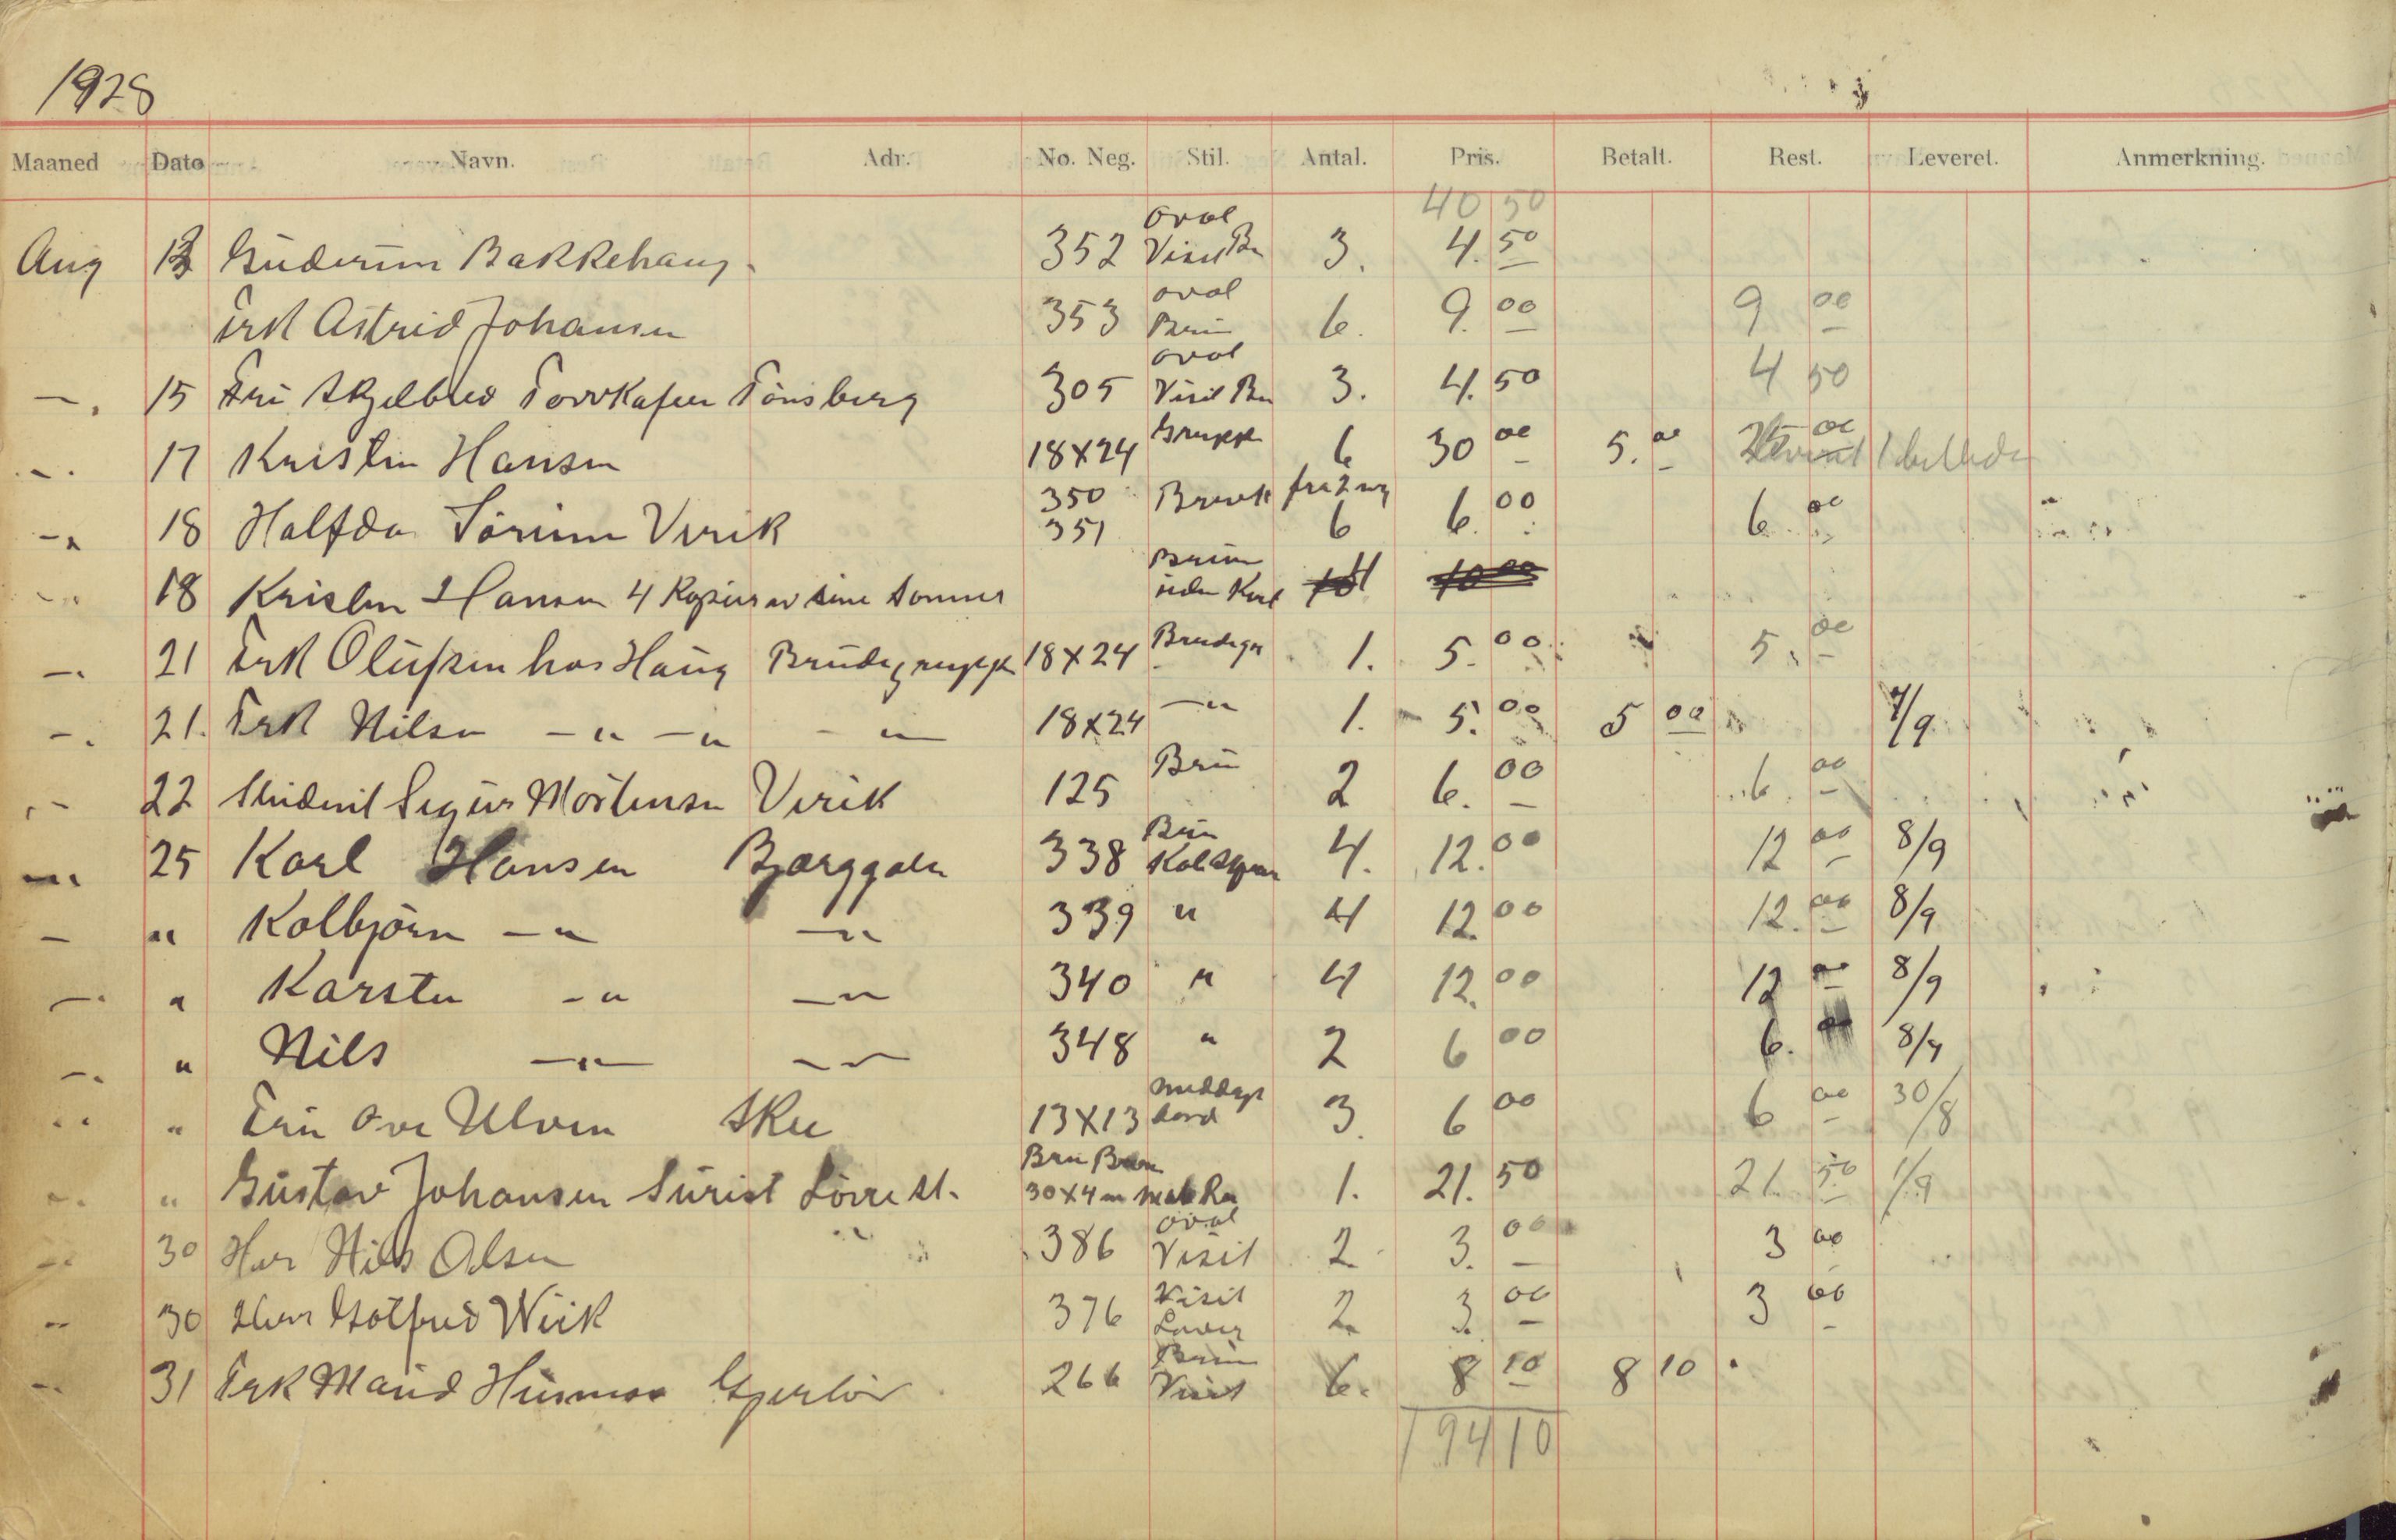 1928
Maaned Dato Navn. Adr. No. Neg. Stil. Antal. Pris. Betalt. Rest. Leveret. Anmerkning.
40 50
Aug 13 Guderun Bakkehaug 352 oval Visit Br 3. 4. 50
Frk Astrid Johansen 353 oval Brun 6. 9. 00 9 00
15 Fru Skjelbred Torvkafeen Tönsberg 305 oval Visit Br 3. 4. 50 4 50
17 Kristin Hansen 18X24 Gruppe 6 30 00 5. 00 1 billede
18 Halfdan Sörum Virik 350 351 fra 2 neg 6 6. 00 6. 00
18 Kristin Hansen 4 Kopier av sine Sönner Brun uden Kart 4
21 Frk Olufsen hos Haug Brudegruppe 18X24 Brudegr 1. 5. 00 5. 00
21. Frk Nilsen -"- -"- -"- 18X24 -"- 1. 5. 00 5 00 4/9
22 Student Sigur Mortensen Virik 125 Bru 2 6. 00 6 00
25 Karl Hansen Bjerggata 338 Brun 4. 12. 00 12 00 8/9
" Kolbjörn -"- -"- 339 " 4 12. 00 12. 00 8/9
" Karsten -"- -"- 340 " 4 12. 00 12 00 8/9
" Nils -"- -"- 348 " 2 6 00 6. 00 8/9
" Fru Ulven 13X13 middags bord 3. 6 00 6 00 30/8
" Gustav Johansen 1. 21. 50 21. 50 1/9
30 Herr Nils Olsen 386 oval Visit 2 3. 00 3 00
30 Herr Gotfred Wiik 376 Visit 2 3. 00 3 00
31 Frk Maud Husmoe 266 Brun Visit 6. 8 10 8 10
194 10